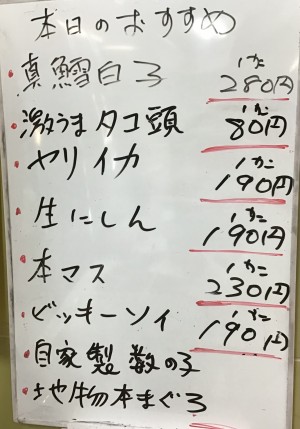 本日のおすすめ
真鱈白子 1かん 280円
激うまタコ頭 1かん 80円
ヤリイカ 1かん 190円
生にしん 1かん 190円
本マス 1かん 230円
ビッキーソイ 1かん 190円
自家製数の子
地物本まぐろ